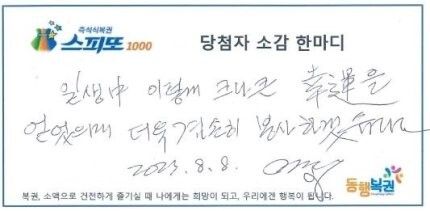 즉석식복권
스피또 1000
당첨자 소감 한마디
일생中 이렇게 크나큰 幸運을
얻었으매 더욱 겸손히 봉사하겠습니다
2023. 8. 8.
동행복권
복권, 소액으로 건전하게 즐기실 때 나에게는 희망이 되고, 우리에겐 행복이 됩니다.